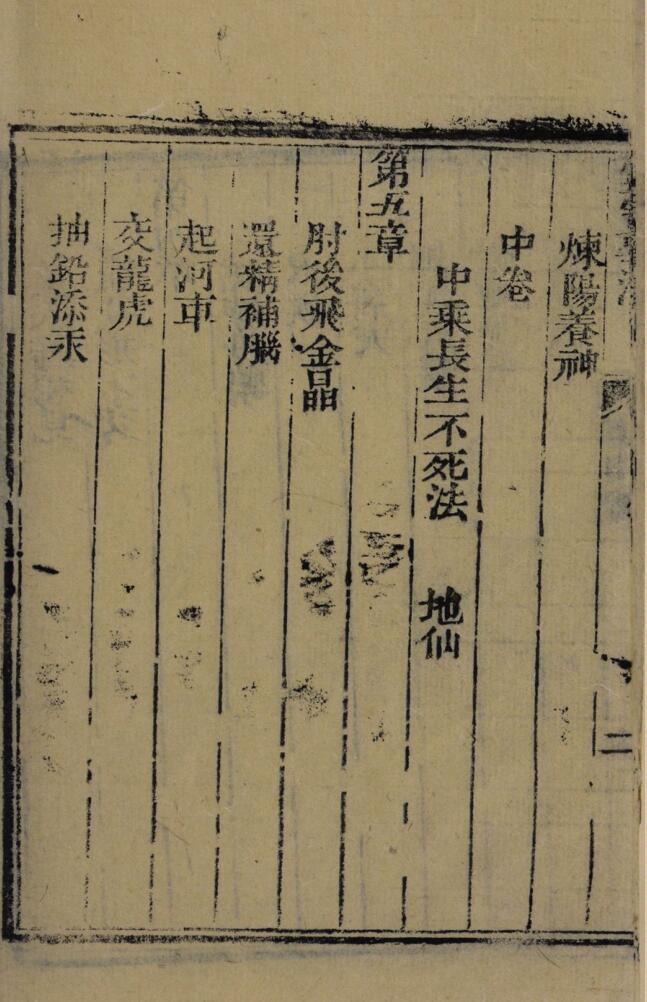 煉陽養神
中卷
中乘長生不死法 地仙
第五章
肘後飛金晶
還精補腦
起河車
交龍虎
抽鉛添汞
二